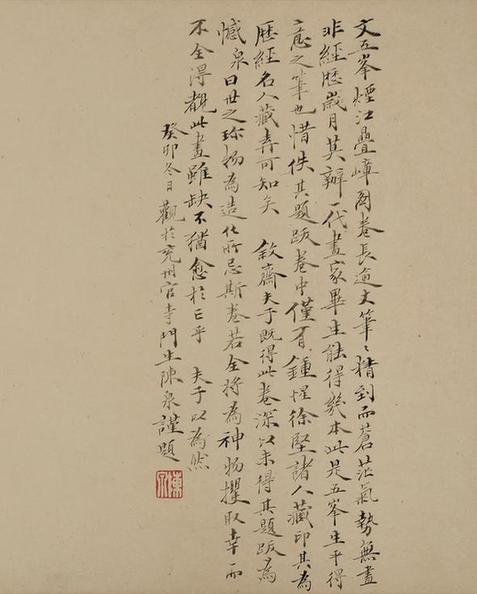 文五峯煙江疊嶂圖卷長逾丈筆〻精到而蒼茫氣勢無畫
非經歷歲月莫辦一代畫家畢生能得幾本此是五峯生平得
意之筆也惜佚其題跋卷中僅有鍾惺徐堅諸人藏印其為
歷經名人藏弆可知矣 敘齋夫子既得此卷深以未得其題跋為
憾泉曰世之珍物為造化所忌斯卷若全將為神物攫取幸而
不全得覯此畫雖缺不猶愈於亡乎 夫子以為然
癸卯冬日觀於兗州官寺門生陳泉謹題